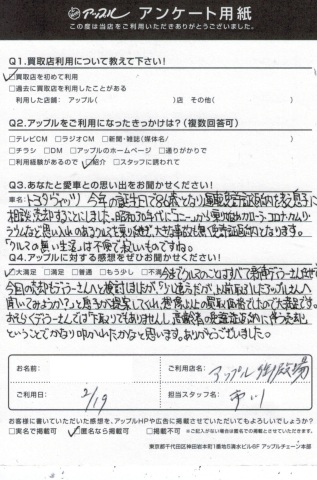 アップル アンケート用紙
この度は当店をご利用いただきありがとうございました。
Q1.買取店利用について教えて下さい!
□買取店を初めて利用
□過去に買取店を利用したことがある
利用した店舗: アップル( )店 その他( )
Q2.アップルをご利用になったきっかけは?(複数回答可)
□テレビCM □ラジオCM □新聞・雑誌(媒体名/ )
□チラシ □DM □アップルのホームページ □通りがかりで
□利用経験があるので □紹介 □スタッフに誘われて
Q3.あなたと愛車との思い出をお聞かせください!
車名:トヨタヴィッツ 今年の誕生日で86歳となり運転免許証返納を家
相談、売却することにしました。昭和30年代に
など思い入れのあるクルマを乗り継ぎ、大きな事故も無く免許証返納となります。
「クルマの無い生活」は不便で寂しいものですね。
Q4.アップルに対する感想をぜひお聞かせください!
□大満足 □満足 □普通 □もう少し □不満 今までクルマのことはすべてディーラーさん任せ
今回の売却もディーラーさんへと検討しましたが「以前取引したアップルさんへ
聞いてみようか?」と息子が提案してくれ、想像以上の買取価格でしたので大満足です。
おそらくディーラーさんでは「下取りでもありませんし、高齢者の免許返納に伴う売却」
ということでかなり叩かれたかなと思います。ありがとうございました。
お名前:
ご利用店名: アップル
ご利用日: 2/19
担当スタッフ名: 市川
お客様に書いていただいた感想を、アップルHPや広告に掲載させていただいてもよろしいでしょうか?
□実名で掲載可 □匿名なら掲載可 □掲載不可 ※ご記入がない場合は匿名での掲載とさせていただきます。
東京都千代田区神田岩本町1番地5清水ビル6F アップルチェーン本部